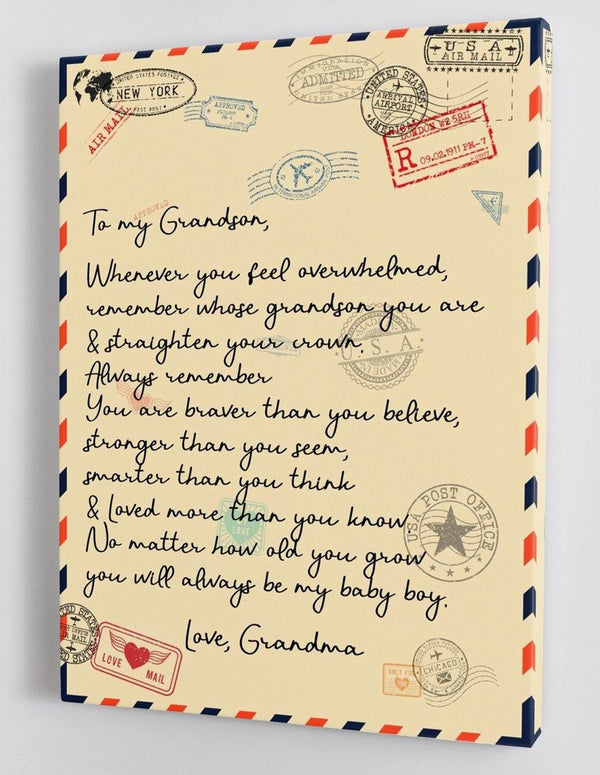 UNITED STATES POSTAGE
NEW YORK
FAST POST
AIR MAIL
APPROVED
IMMIGRATION
ADMITTED
UNITED STATES
UNITED STATES
ARRIVAL
AIRPORT
AMERICA
USA
AIR MAIL
LONDON W2 5RH
R 09.02.1911 PM-7
INTERNATIONAL AIRMAIL
APPROVED
To my Grandson,
Whenever you feel overwhelmed,
remember whose grandson you are
& straighten your crown.
Always remember
You are braver than you believe,
stronger than you seem,
smarter than you think
& Loved more than you know.
No matter how old you grow
you will always be my baby boy.
Love, Grandma
MADE IN
U.S.A.
MADE IN
LOVE
USA POST OFFICE
UNITED STATES
AIR MAIL
UNITED STATES
LOVE MAIL
ONLY FOR
CHICAGO